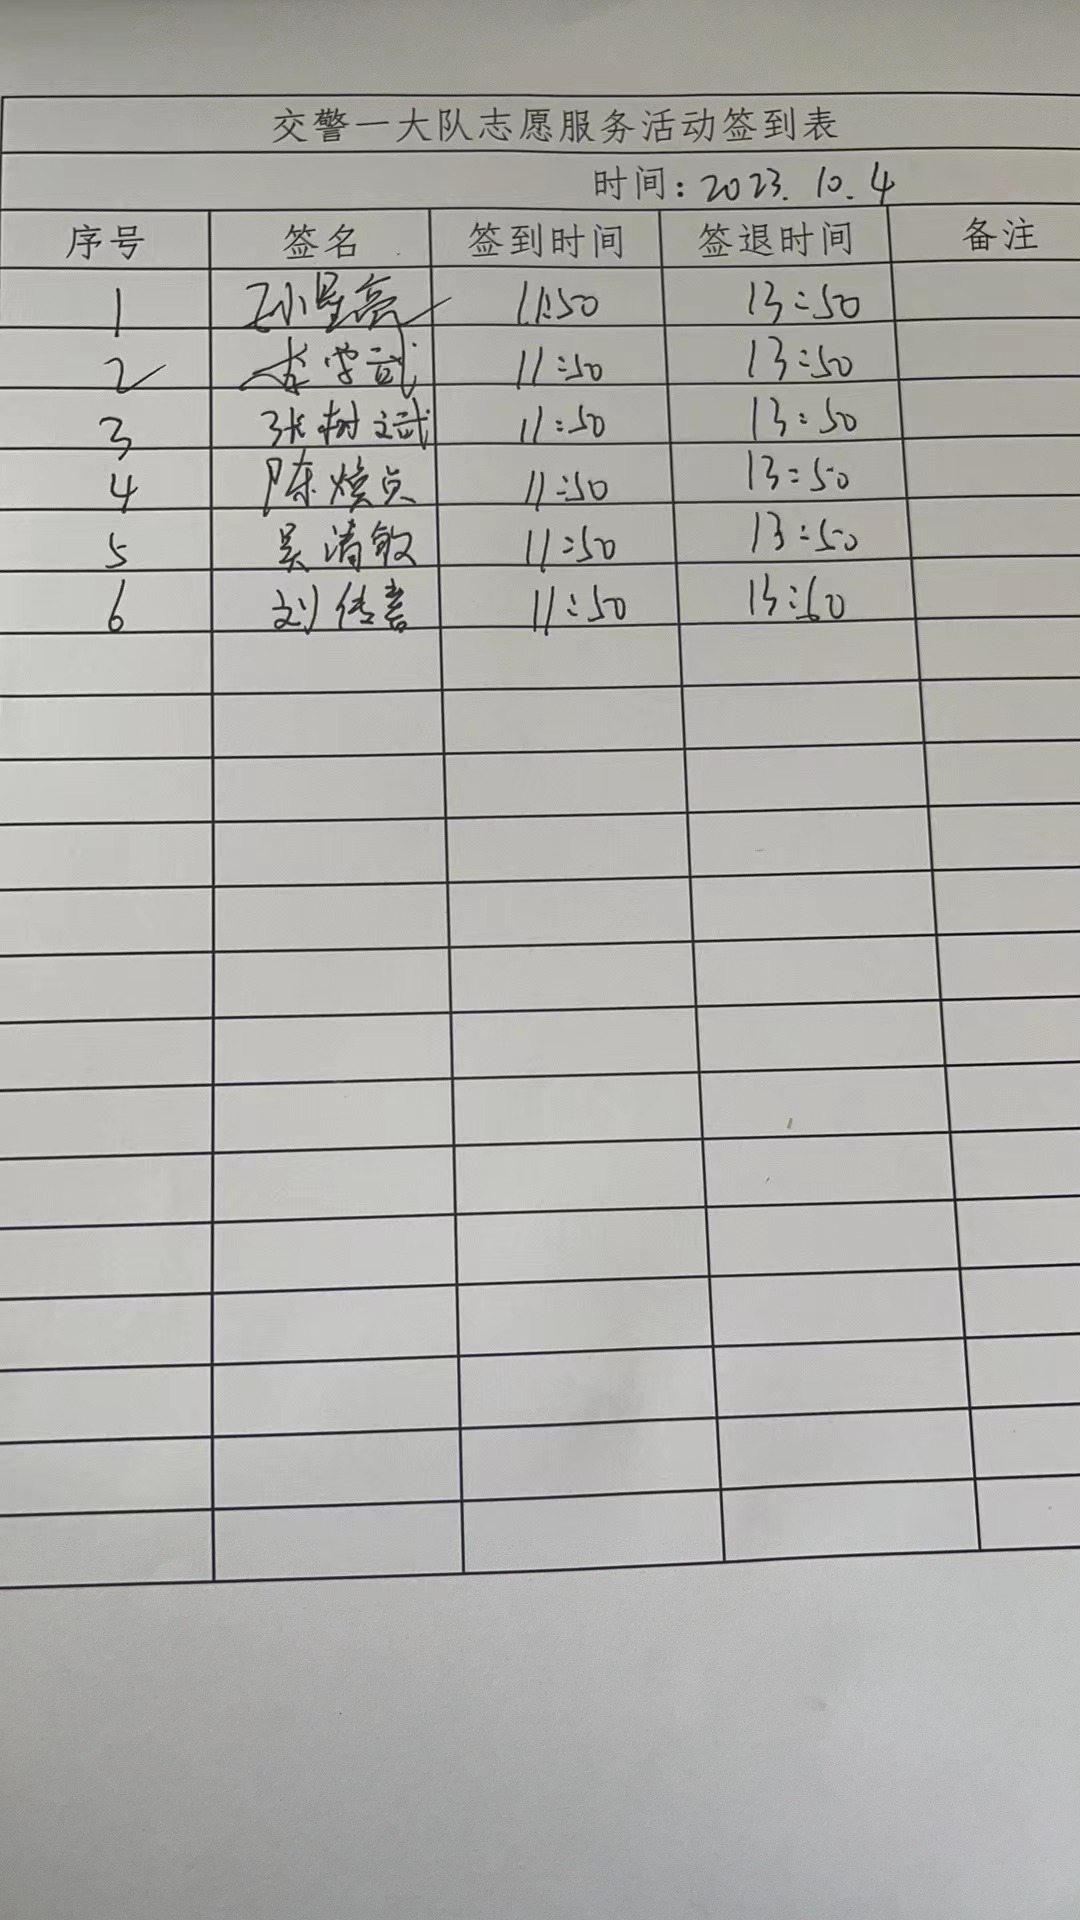 交警一大队志愿服务活动签到表
时间：2023.10.4
序号 签名 签到时间 签退时间 备注
1 孙星亮 11:50 13:50
2 李学武 11:50 13:50
3 张树斌 11:50 13:50
4 陈焕贞 11:50 13:50
5 吴清敏 11:50 13:50
6 刘传喜 11:50 13:50